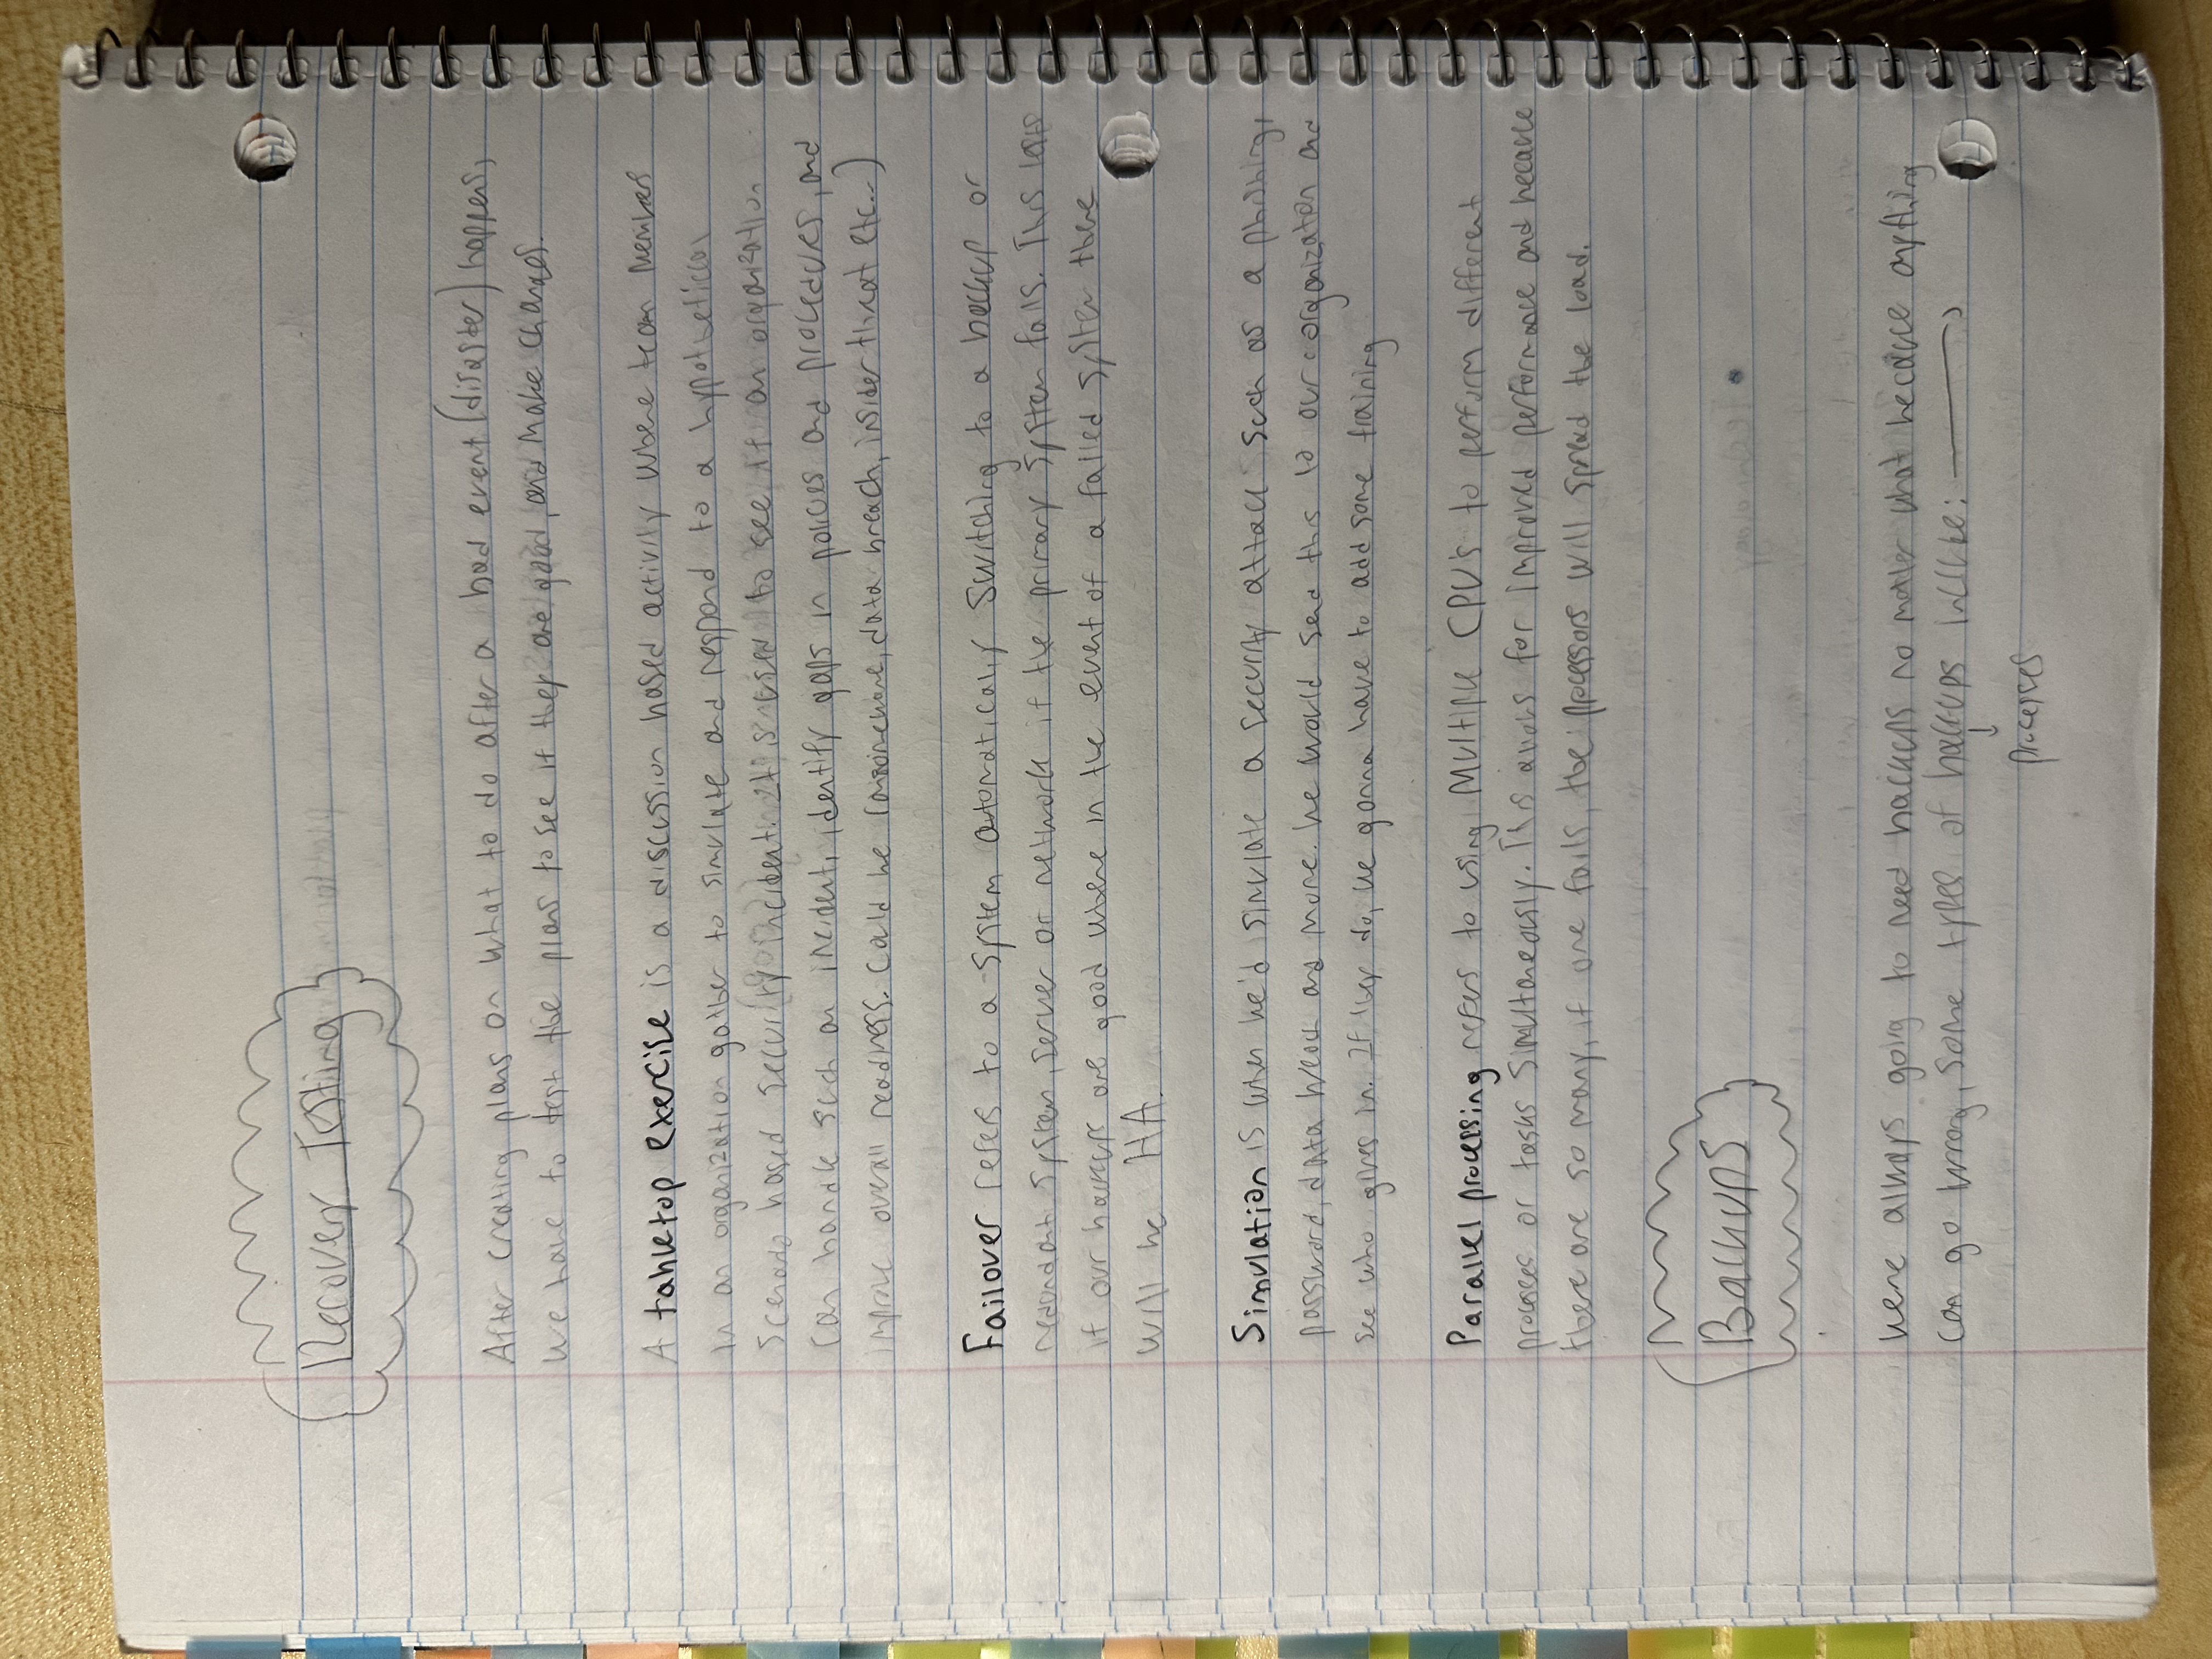 Recovery Testing
After creating plans on what to do after a bad event (disaster) happens,
we have to test the plans to see if they are good, and make changes.
A tabletop exercise is a discussion based activity where team members
in an organization gather to simulate and respond to a hypothetical
scenario based security incident. It is used to see if an organization
can handle such an incident, identify gaps in policies and procedures, and
improve overall readiness. Could be (ransomware, data breach, insider threat etc...)
Failover refers to a system automatically switching to a backup or
redundant system, server or network if the primary system fails. This tests
if our backups are good where in the event of a failed system there
will be HA.
Simulation is when we'd simulate a security attack such as a phishing,
password, data breach and more. We would send this to our organization and
see who gives in. If they do, we gonna have to add some training
Parallel processing refers to using multiple CPU's to perform different
processes or tasks simultaneously. This allows for improved performance and because
there are so many, if one fails, the processors will spread the load.
Backups
We're always going to need backups no matter what because anything
can go wrong, some types of backups include:
processes